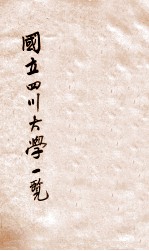 國立四川大學一覽